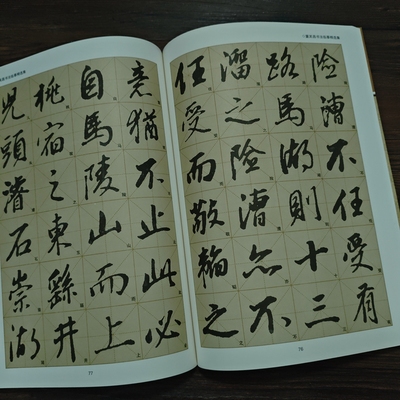 險漕不任受有
路馬湖則十三
溜之險漕亦不
任受而
輸之
76
意猶不止此必
自馬陵山而上
桃宿之東繇井
頭濬石崇湖
77